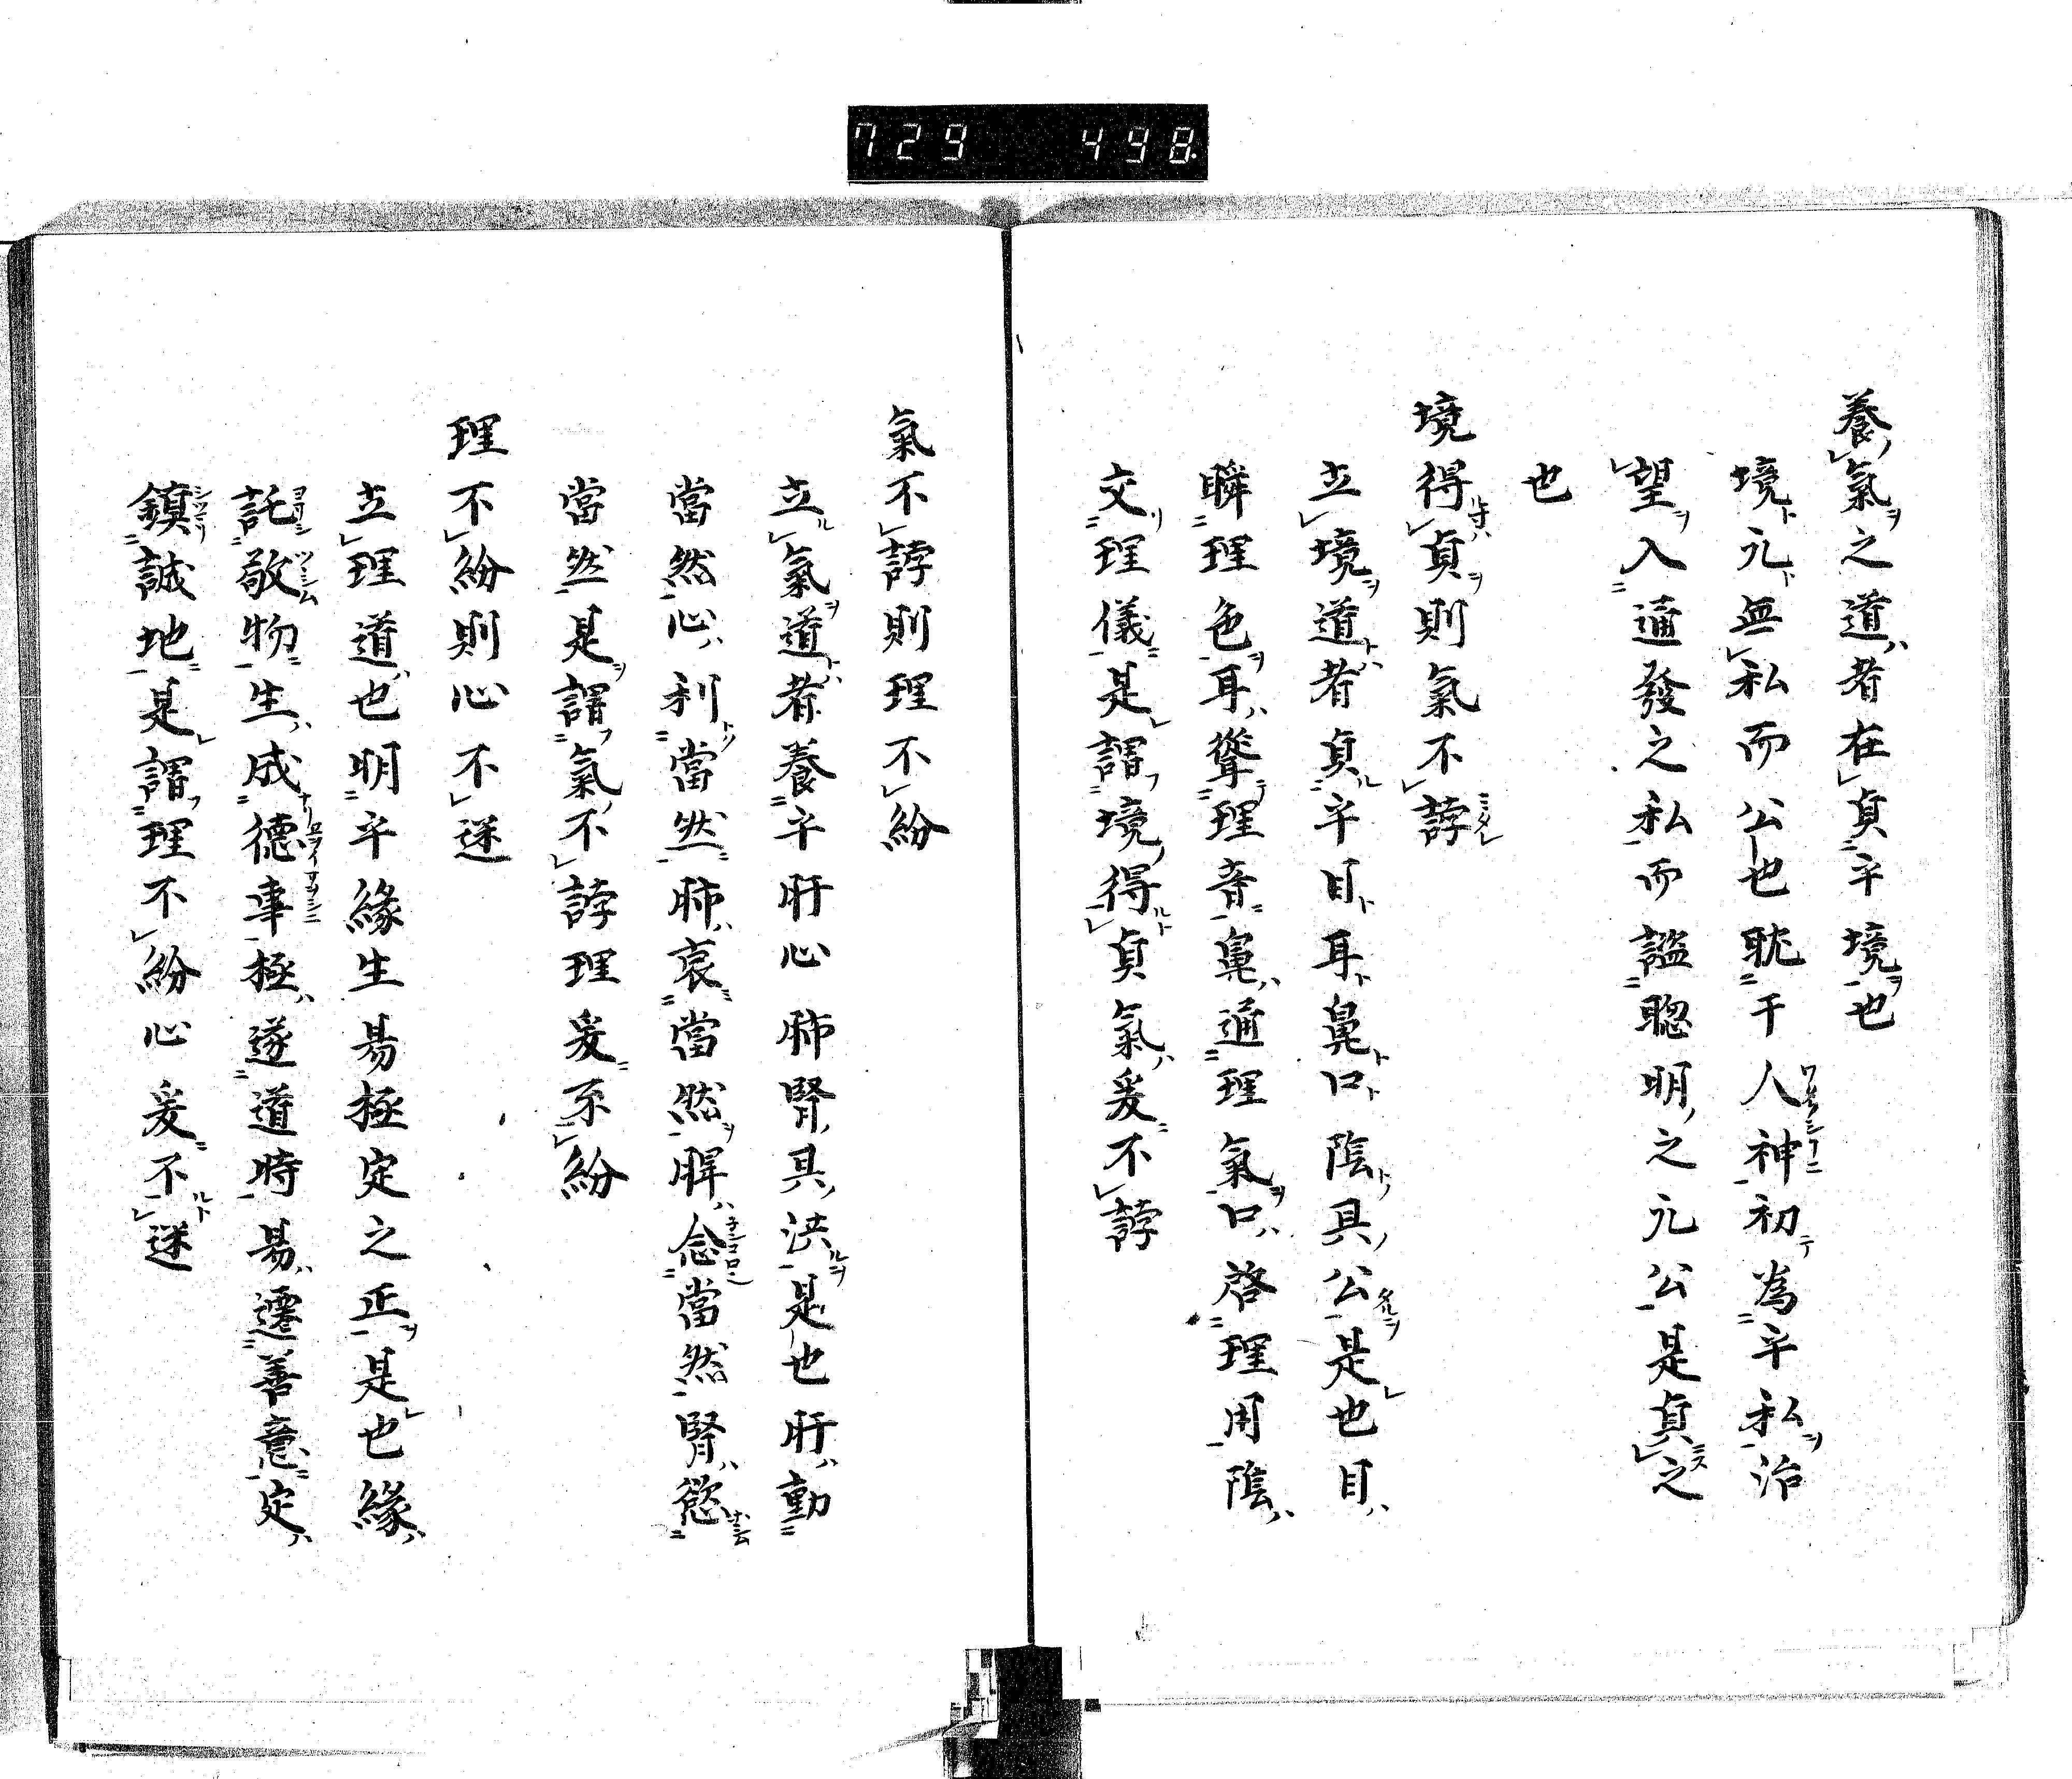 729 498
養氣之道者在貞乎境也
境元無私而公也眈于人神初為乎私治
望入通發之私而謐聰明之元公是貞之
也
境得貞則氣不誖
立境道者貞乎目耳鼻口陰具公是也目
瞬理色耳聳理音鼻通理氣口啓理用陰
交理儀是謂境得貞氣爰不誖
氣不誖則理不紛
立氣道者養乎肝心肺腎具洪是也肝動
當然心利當然肺哀當然脾念當然腎慾
當然是謂氣不誖理爰不紛
理不紛則心不迷
立理道也明乎緣生易極定之正是也緣
託敬物生成德事極遂道時易遷善意定
鎮誠地是謂理不紛心爰不迷